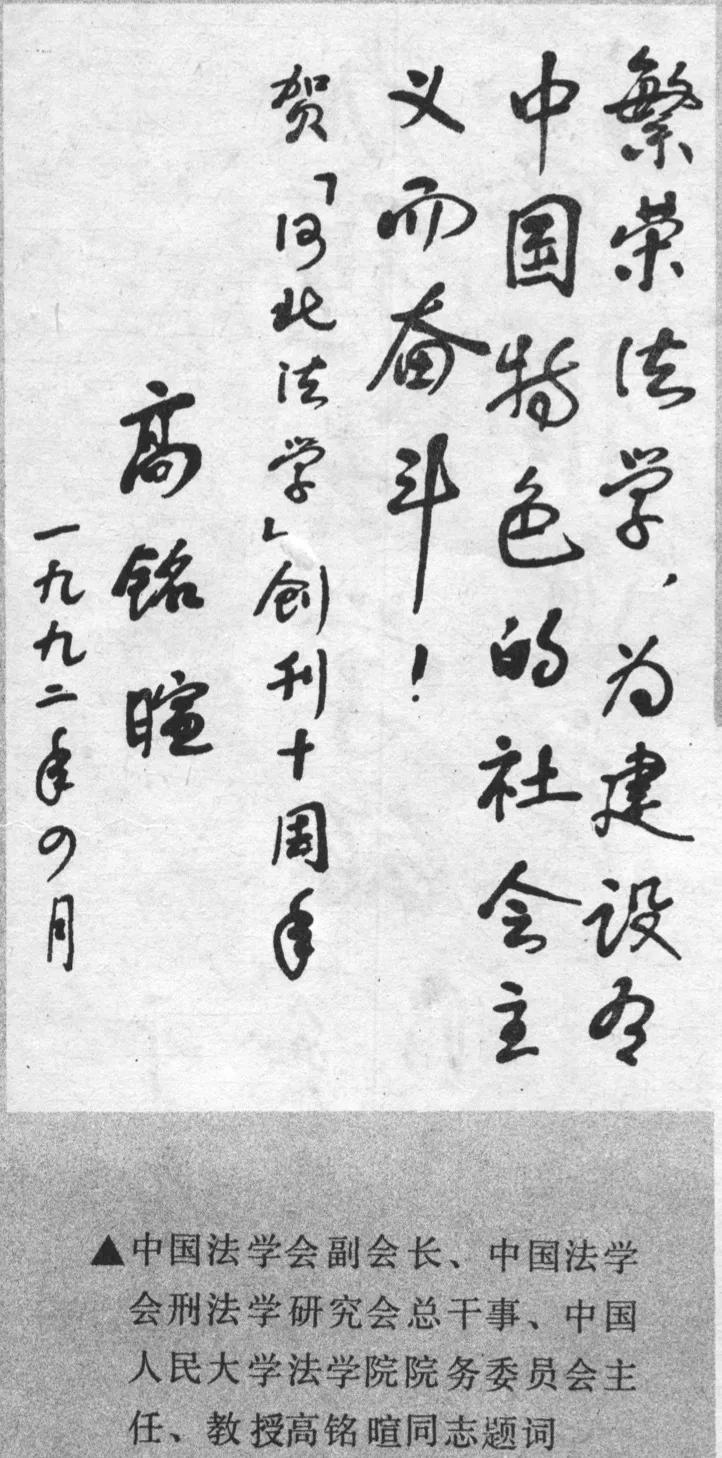 繁荣法学，为建设有
中国特色的社会主
义而奋斗！
贺「河北法学」创刊十周年
高铭暄
一九九二年四月
▲中国法学会副会长、中国法学
会刑法学研究会总干事、中国
人民大学法学院院务委员会主
任、教授高铭暄同志题词